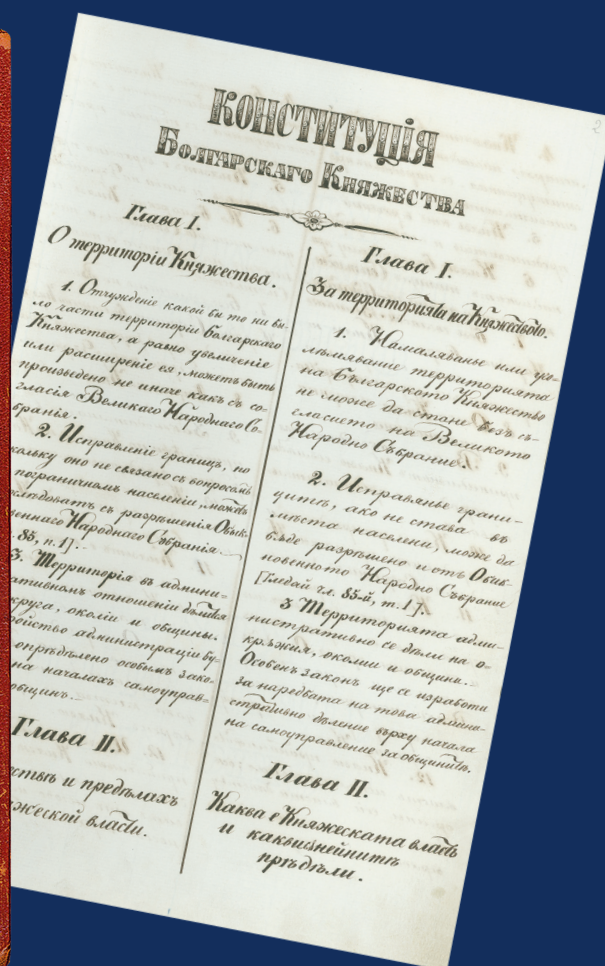 2
КОНСТИТУЦІЯ
БОЛГАРСКАГО КНЯЖЕСТВА
Глава I.
О территоріи Княжества.
1. Отчужденіе какой бы то ни бы-
ло части территоріи Болгарскаго
Княжества, а равно увеличеніе
или расширеніе ея, можетъ быть
произведено не иначе какъ съ со-
гласія Великаго Народнаго Со-
бранія.
2. Исправленіе границъ, по
кольку оно не связано съ вопросомъ
пограничномъ населеніи, можетъ
съ разрѣшенія Обык-
веннаго Народнаго Собранія.
. 85, п. 1].
3. Территорія въ админи-
ативномъ отношеніи дѣлится
круга, околіи и общины.
ойство администраціи бу-
опредѣлено особымъ зако-
на началахъ самоуправ-
общинъ.
Глава II.
и предѣлахъ
яжеской власти.
Глава I.
За территорията на Княжеството.
1. Намаляванье или уго-
лѣмяванье територията
на Българското Княжество
не може да стане безъ съ-
гласието на Великото
Народно Събрание.
2. Исправянье грани-
цитѣ, ако не става въ
мѣста населени, може да
бѫде разрѣшено и отъ Обик-
новенното Народно Събрание
[Гледай гл. 85-й, т. 1].
3 Територията адми-
нистративно се дѣли на о-
крѫжия, околии и общини.
Особенъ законъ ще се изработи
за наредбата на това админи-
стративно дѣление върху начала
на самоуправление за общинитѣ.
Глава II.
Каква е Княжеската власть
и какви сѫ нейнитѣ
прѣдѣли.